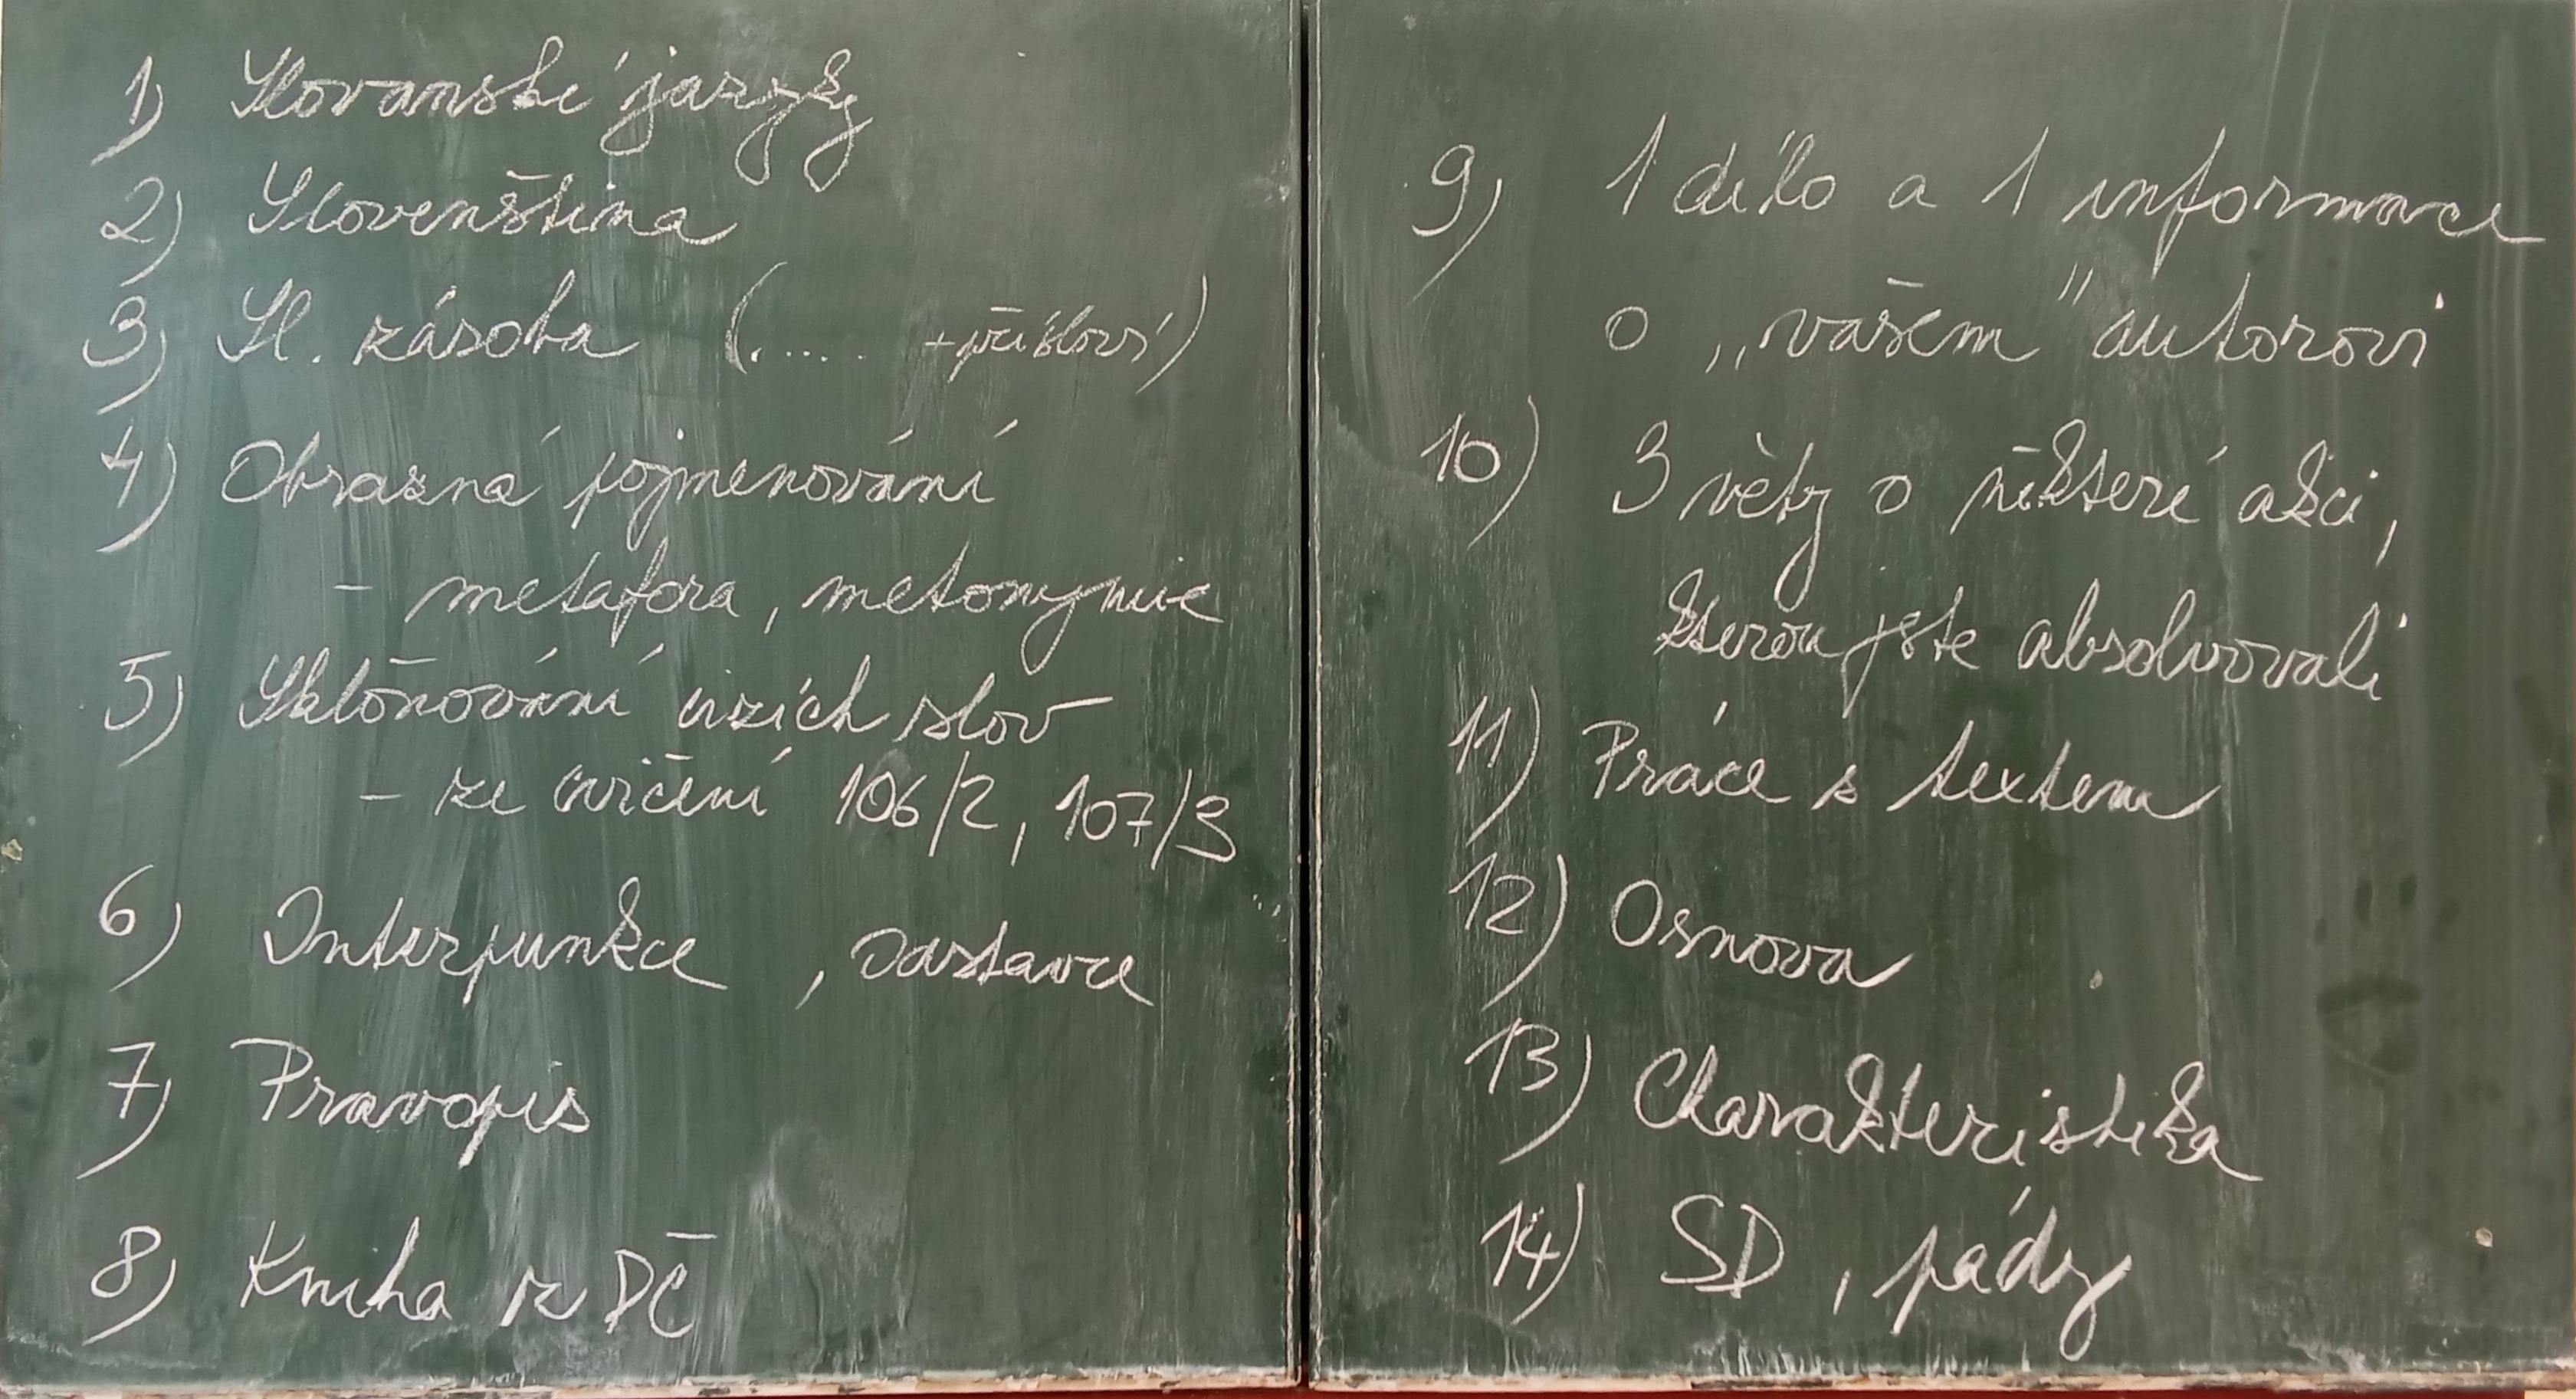 1) Slovanské jazyky
2) Slovenština
3) Sl. zásoba (..... + přísloví)
4) Obrazná pojmenování
- metafora, metonymie
5) Skloňování cizích slov
- ze cvičení 106/2, 107/3
6) Interpunkce, odstavce
7) Pravopis
8) Kniha z DČ
9) 1 dílo a 1 informace
o „vašem" autorovi
10) 3 věty o některé akci,
kterou jste absolvovali
11) Práce s textem
12) Osnova
13) Charakteristika
14) SD, pády